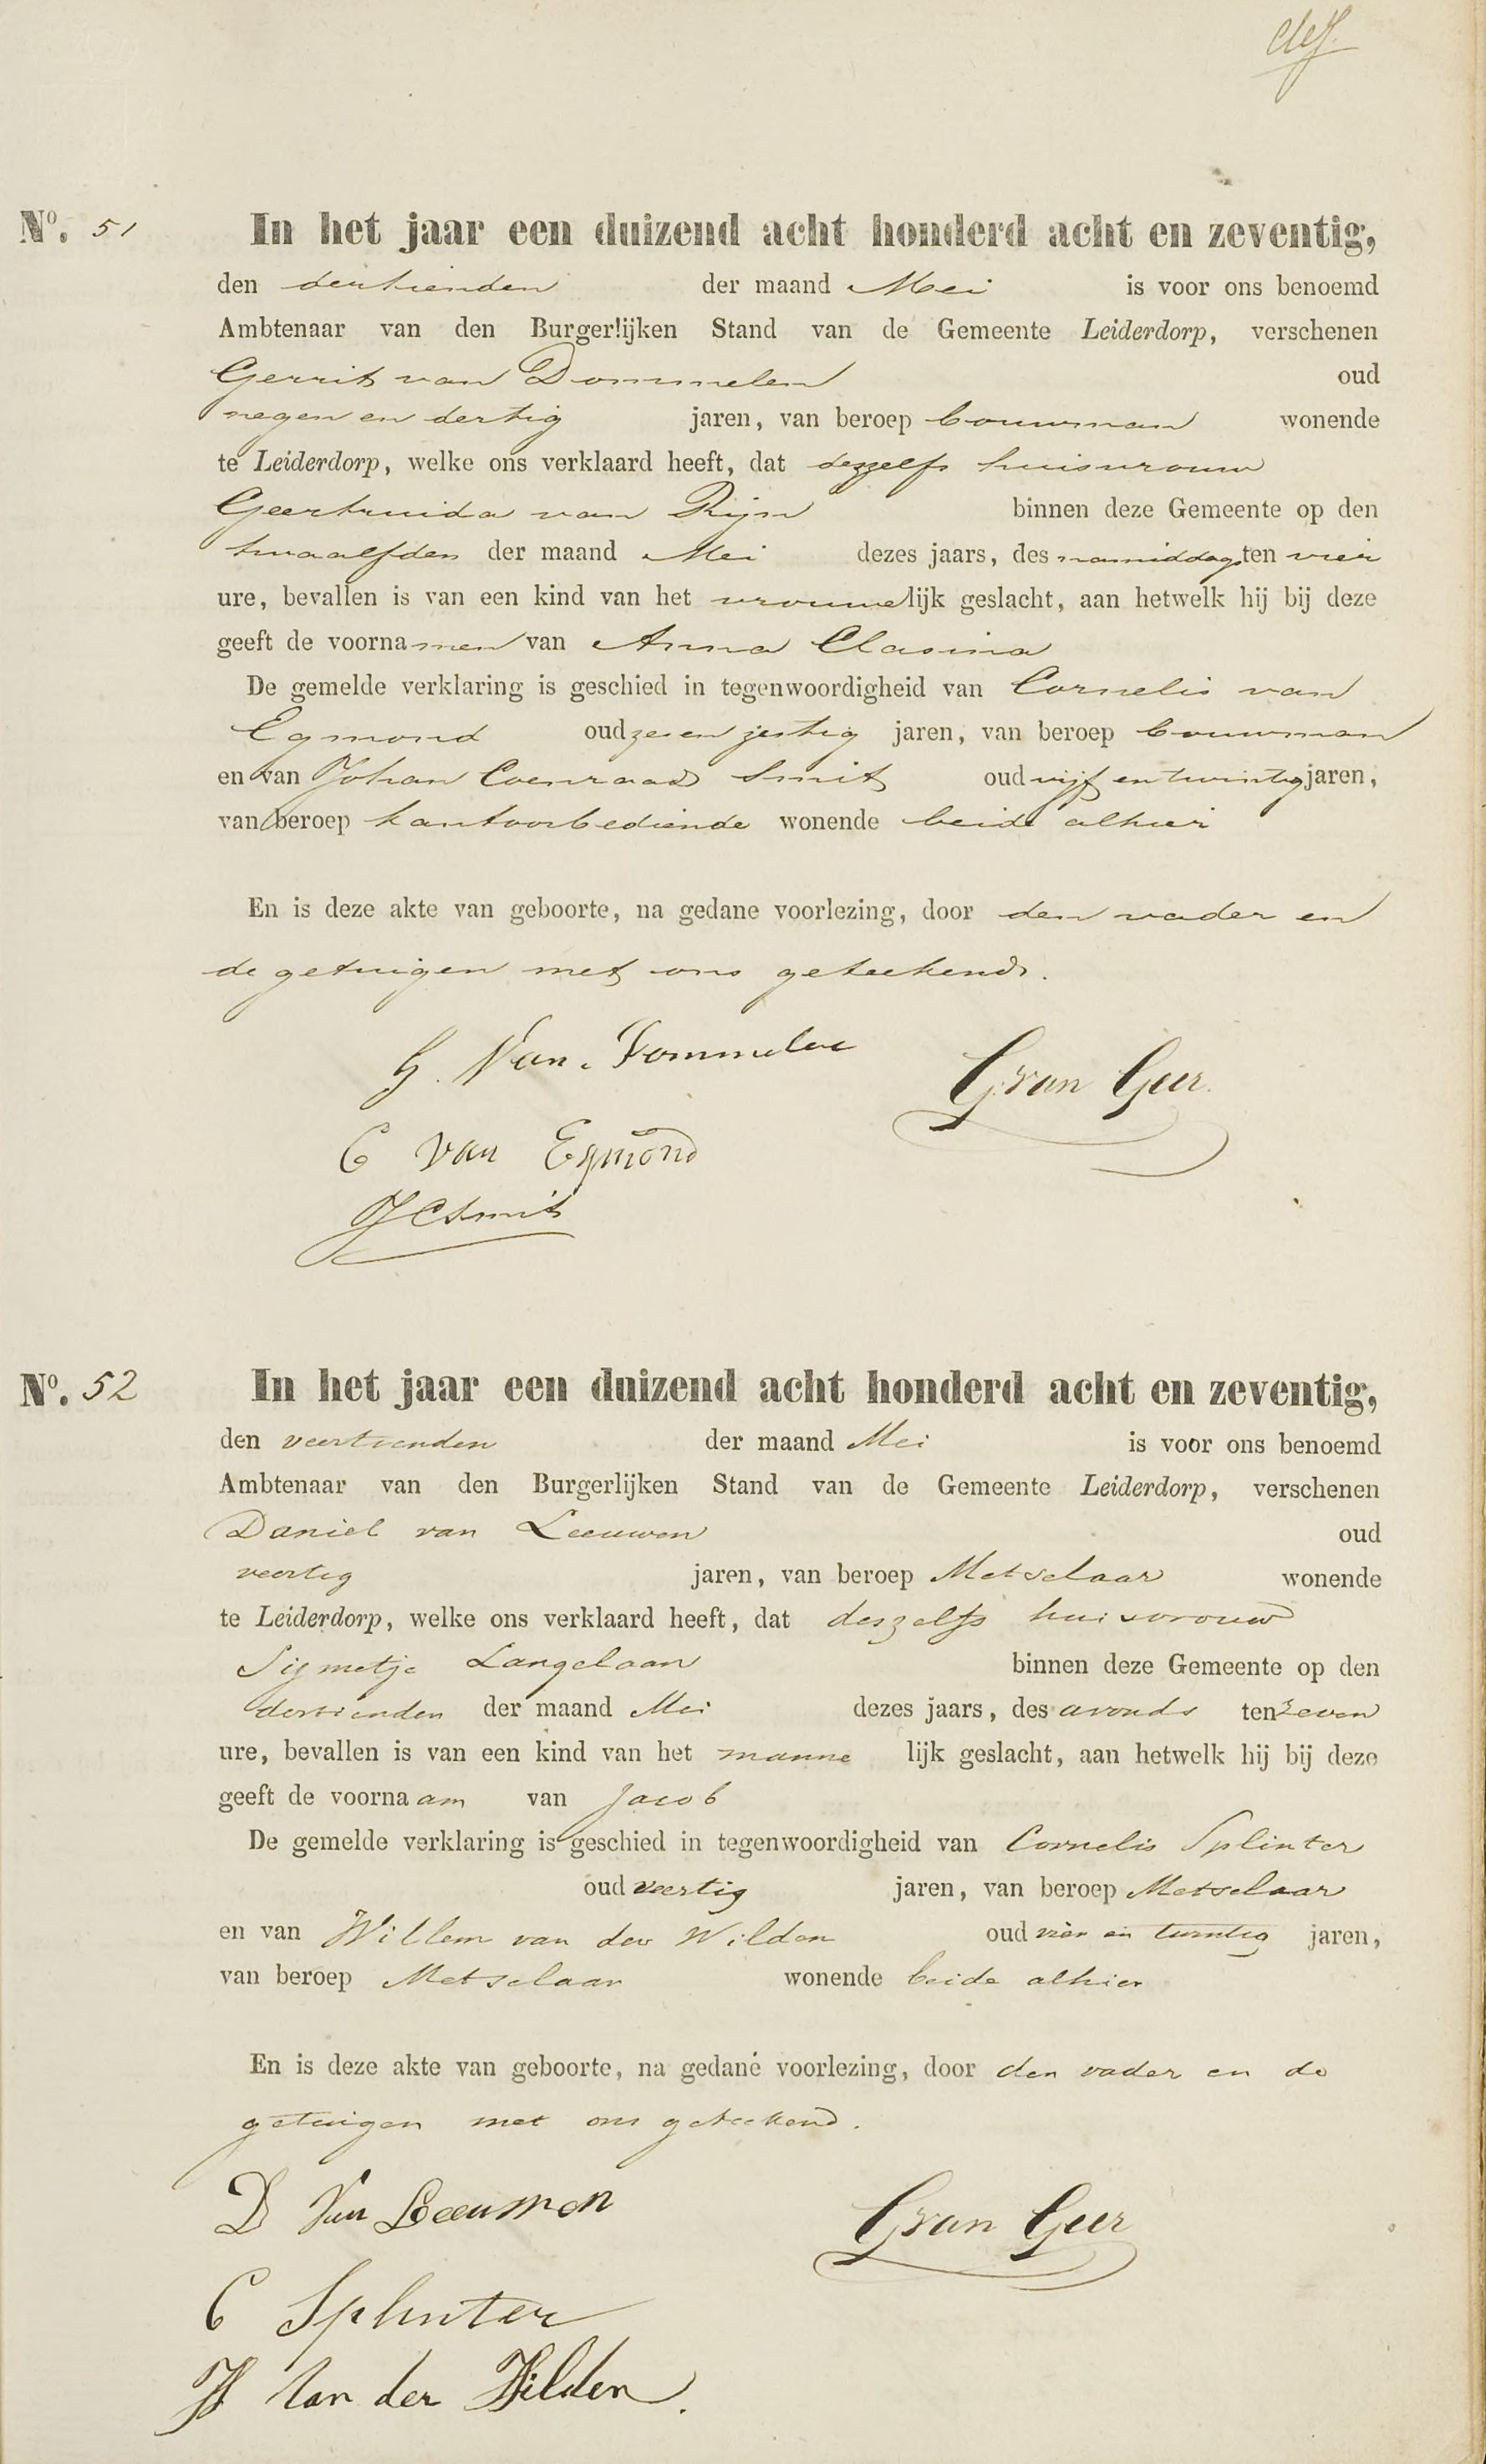 elf
Nº. 51 In het jaar een duizend acht honderd acht en zeventig,
den dertienden der maand Mei is voor ons benoemd
Ambtenaar van den Burgerlijken Stand van de Gemeente Leiderdorp, verschenen
Gerrit van Dommelen oud
negen en dertig jaren, van beroep bouwman wonende
te Leiderdorp, welke ons verklaard heeft, dat deszelfs huisvrouw
Geertruida van Rijn binnen deze Gemeente op den
twaalfden der maand Mei dezes jaars, des namiddags ten vier
ure, bevallen is van een kind van het vrouwelijk geslacht, aan hetwelk hij bij deze
geeft de voornamen van Anna Clasina
De gemelde verklaring is geschied in tegenwoordigheid van Cornelis van
Egmond oud zes en zestig jaren, van beroep bouwman
en van Johan Coenraad Smit oud vijf en twintig jaren,
van beroep kantoorbediende wonende beide alhier
En is deze akte van geboorte, na gedane voorlezing, door den vader en
de getuigen met ons geteekend.
G. Van. Dommelen
G. van Geer.
C van Egmond
J C Smit
Nº. 52 In het jaar een duizend acht honderd acht en zeventig,
den veertienden der maand Mei is voor ons benoemd
Ambtenaar van den Burgerlijken Stand van de Gemeente Leiderdorp, verschenen
Daniel van Leeuwen oud
veertig jaren, van beroep Metselaar wonende
te Leiderdorp, welke ons verklaard heeft, dat deszelfs huisvrouw
Sijmetje Langelaan binnen deze Gemeente op den
dertienden der maand Mei dezes jaars, des avonds ten zeven
ure, bevallen is van een kind van het mannelijk geslacht, aan hetwelk hij bij deze
geeft de voornaam van Jacob
De gemelde verklaring is geschied in tegenwoordigheid van Cornelis Splinter
oud veertig jaren, van beroep Metselaar
en van Willem van der Wilden oud vier en twintig jaren,
van beroep Metselaar wonende beide alhier
En is deze akte van geboorte, na gedane voorlezing, door den vader en de
getuigen met ons geteekend.
D Van Leeuwen
G van Geer
C Splinter
W Van der Wilden.